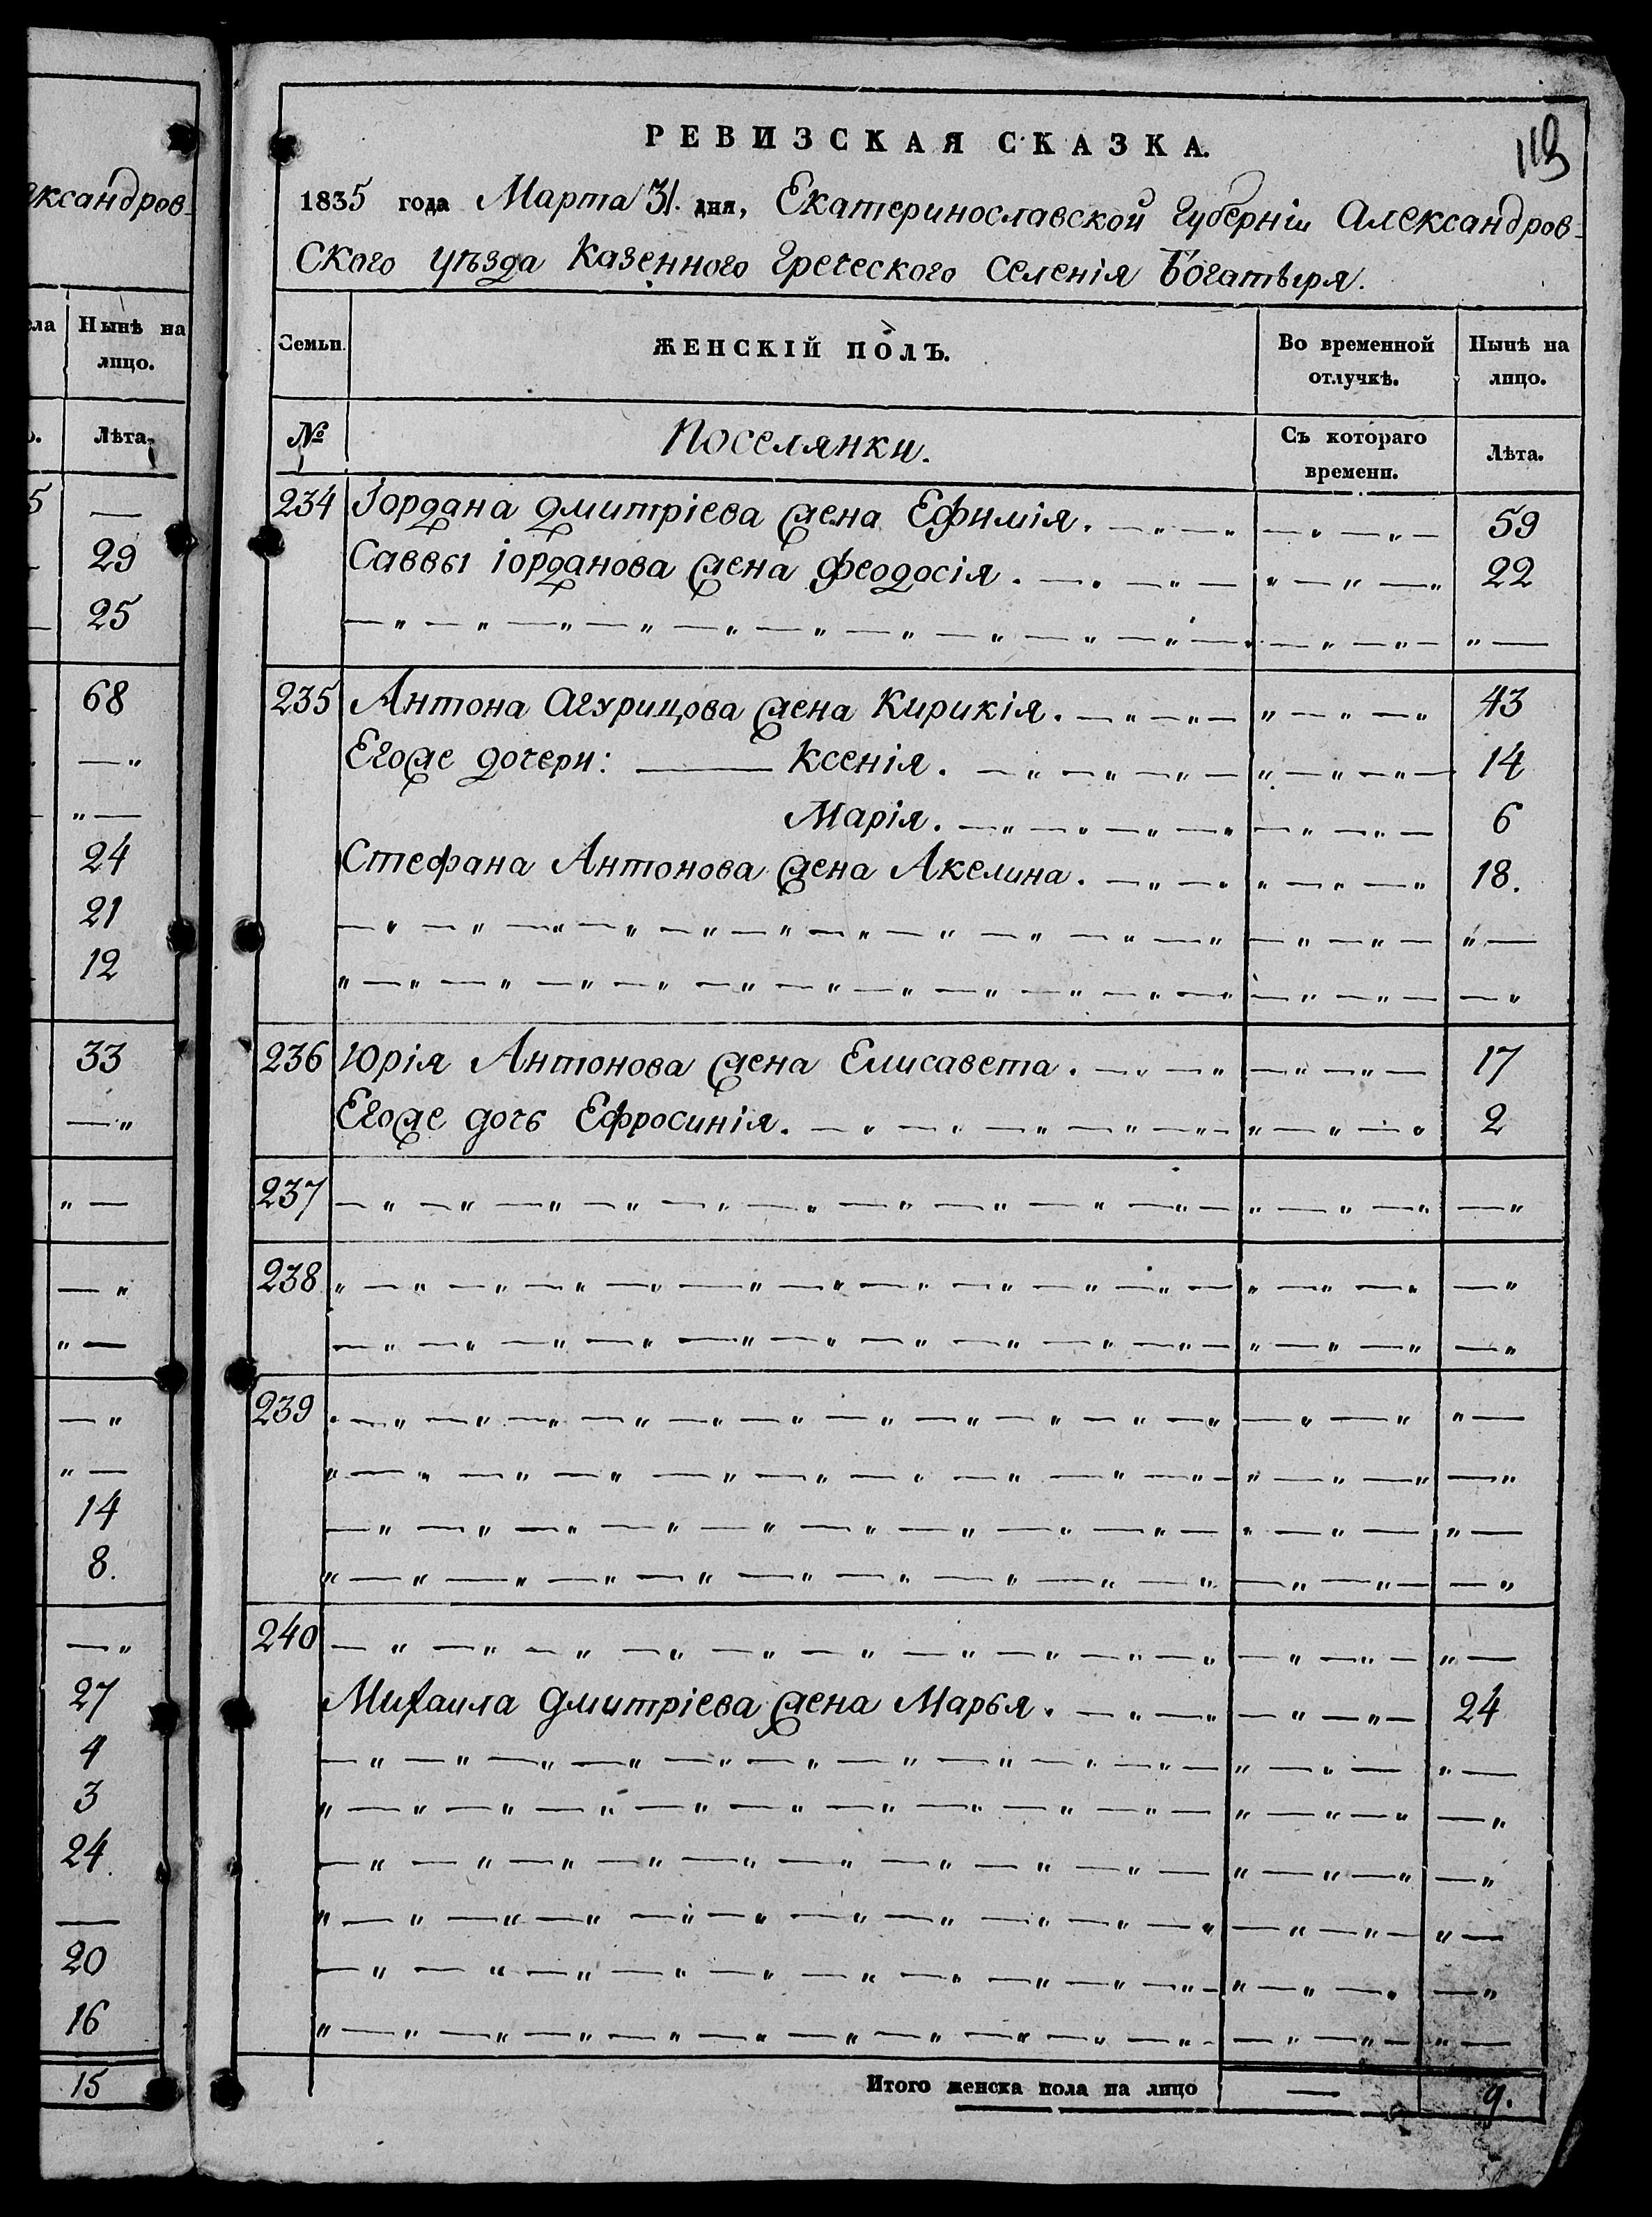 ександров-
ела Нынѣ на
лицо.
Лѣта.
5 —
29
25
68
— "
" —
24
21
12
33
— "
" —
— "
" —
— "
" —
14
8.
— "
27
4
3
24.
—
20
16
15
113
РЕВИЗСКАЯ СКАЗКА.
1835 года Марта 31. дня, Екатеринославской Губерніи Александров-
ского уѣзда Казенного Греческого Селенія Богатыря.
Семьи. ЖЕНСКІЙ ПОЛЪ. Во временной отлучкѣ. Нынѣ на лицо.
№ Поселянки. Съ котораго времени. Лѣта.
234 Іордана Дмитріева жена Ефимія. 59
Саввы Іорданова жена Феодосія. 22
235 Антона Агурицова жена Кирикія. 43
Егоже дочери: Ксенія. 14
Марія. 6
Стефана Антонова жена Акелина. 18.
236 Юрія Антонова жена Елисавета. 17
Егоже дочь Ефросинія. 2
237
238
239
240
Михаила Дмитріева жена Марья. 24
Итого женска пола на лицо — 9.